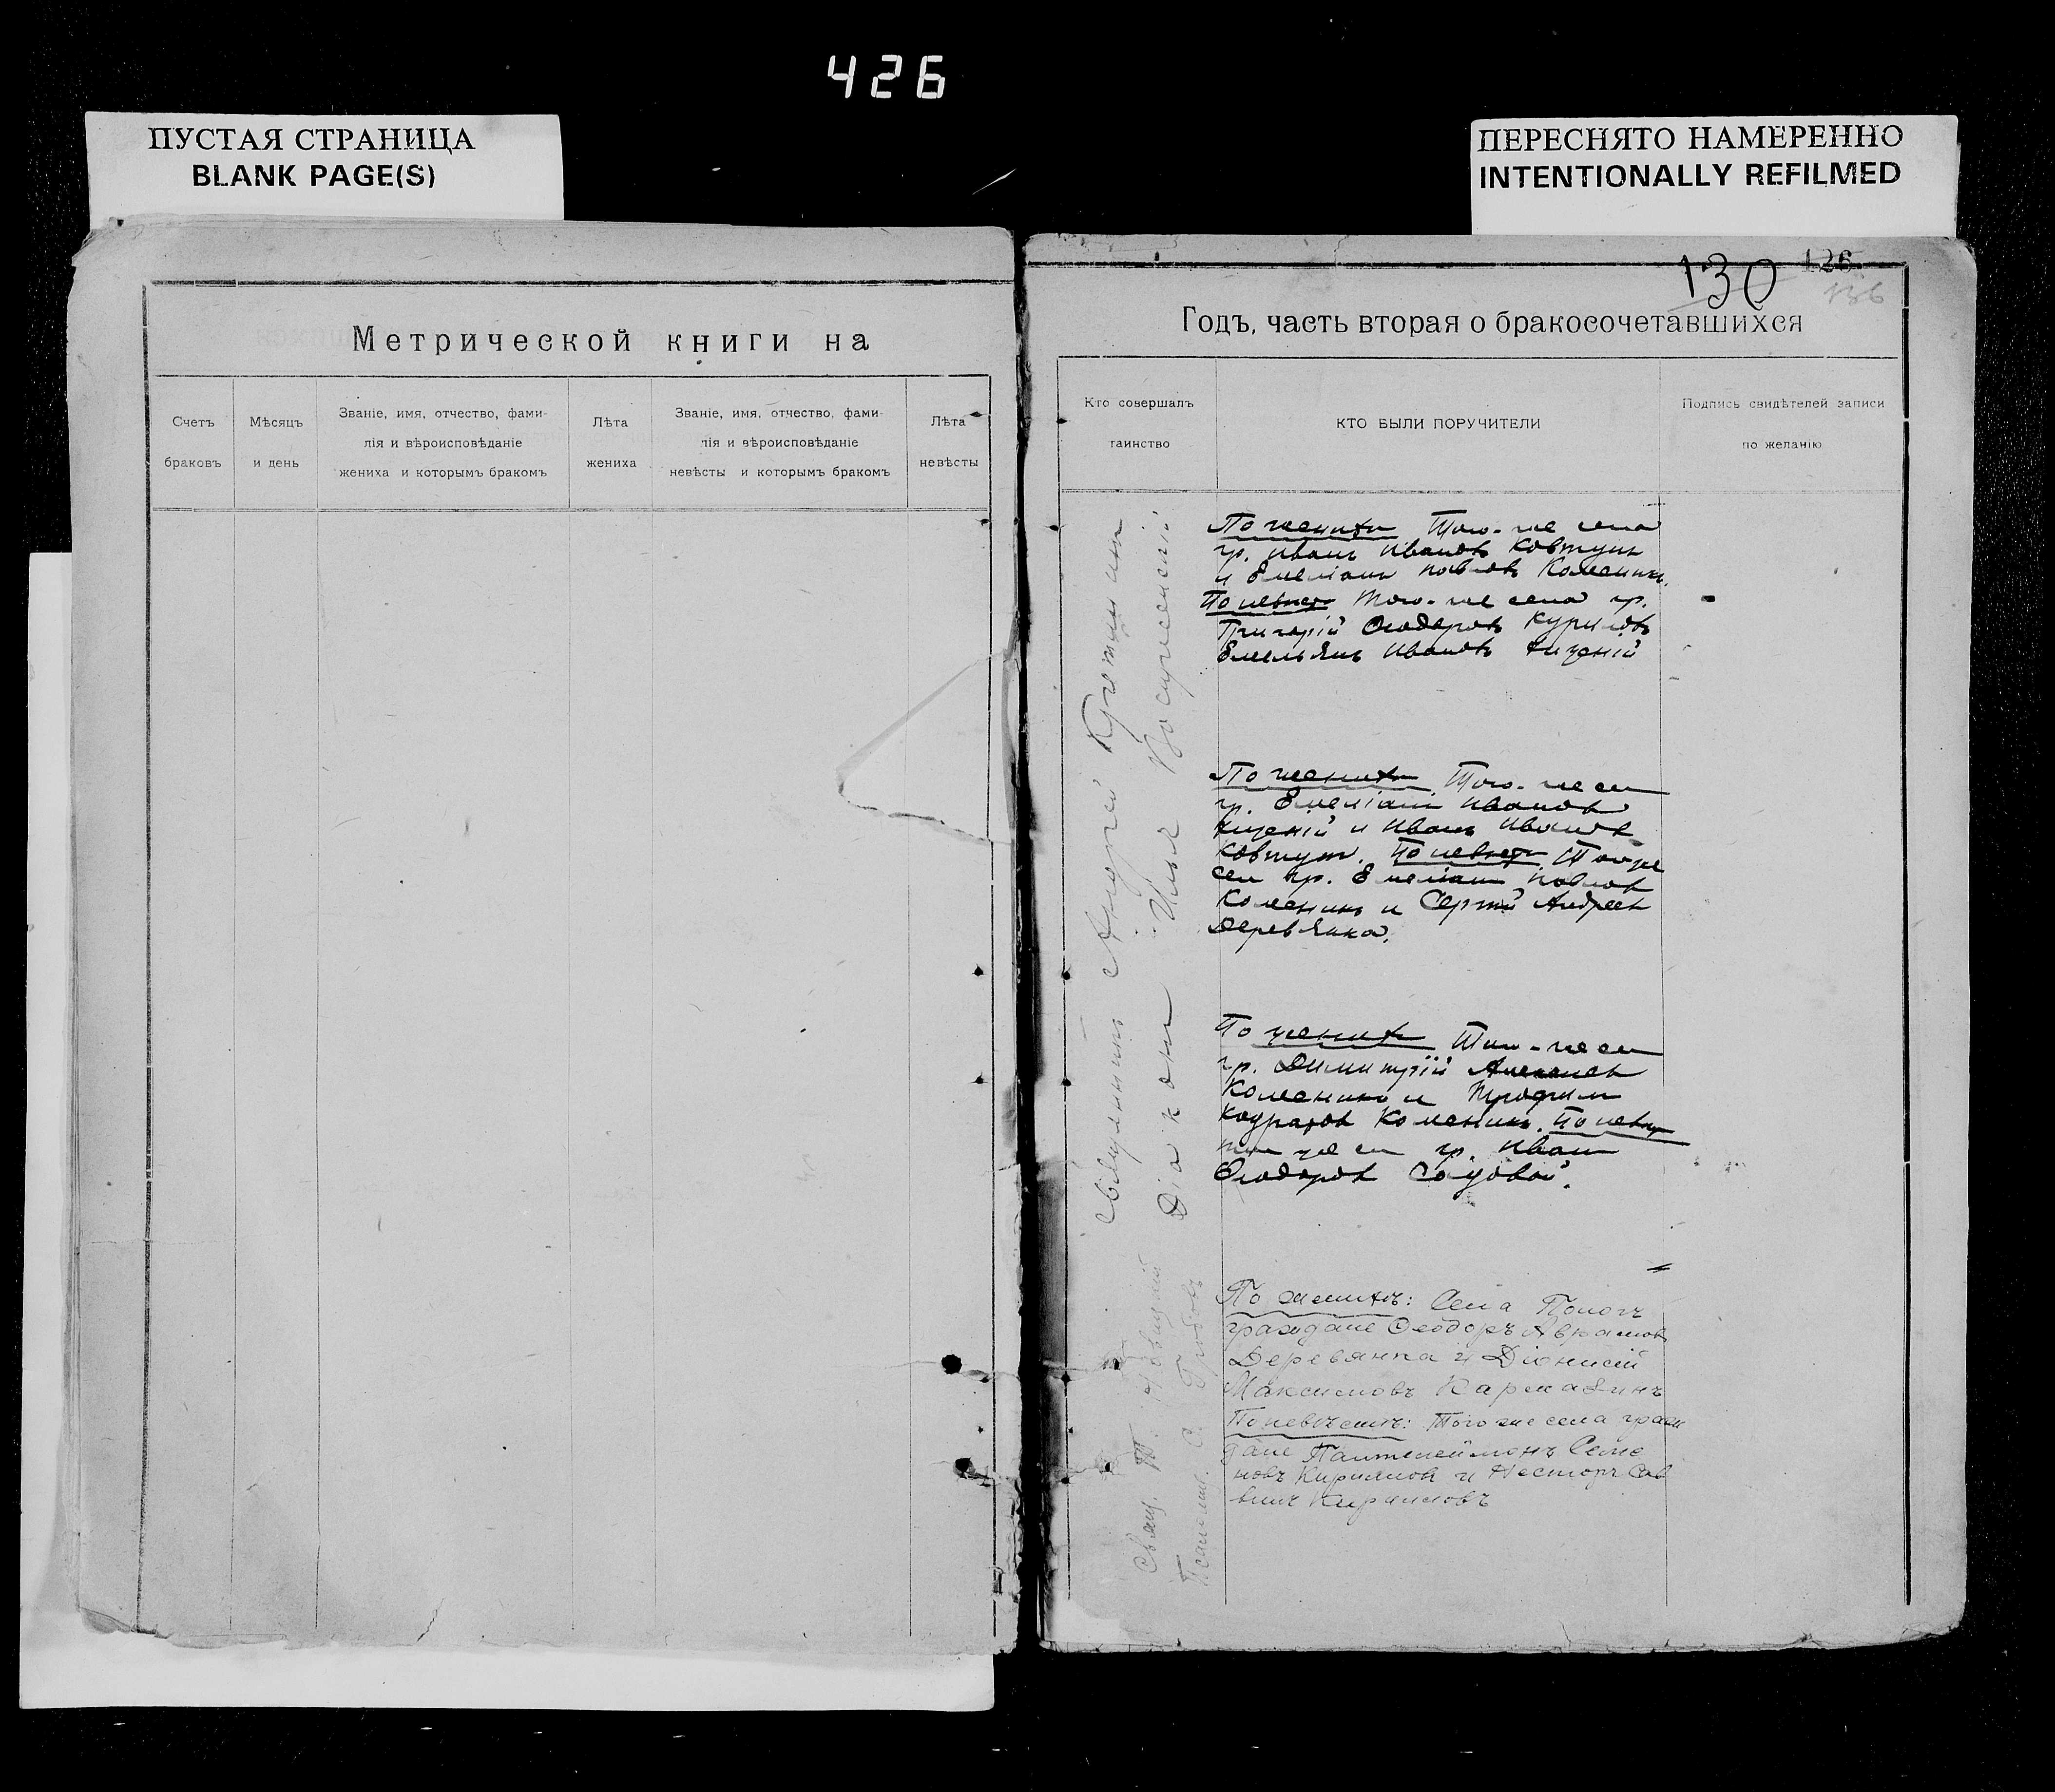 426
ПУСТАЯ СТРАНИЦА
BLANK PAGE(S)
ПЕРЕСНЯТО НАМЕРЕННО
INTENTIONALLY REFILMED
Метрической книги на
Счетъ
браковъ
Мѣсяцъ
и день
Званіе, имя, отчество, фами-
лія и вѣроисповѣданіе
жениха и которымъ бракомъ
Лѣта
жениха
Званіе, имя, отчество, фами-
лія и вѣроисповѣданіе
невѣсты и которымъ бракомъ
Лѣта
невѣсты
130
126
136
Годъ, часть вторая о бракосочетавшихся
Кто совершалъ
таинство
КТО БЫЛИ ПОРУЧИТЕЛИ
Подпись свидѣтелей записи
по желанію
Священникъ Андрей
Діаконъ Илья
По женихѣ Того-же села
гр. Иванъ Ивановъ Ковтунъ
и Емеліанъ Павловъ
По невѣстѣ Того-же села гр.
Григорій Ѳеодоровъ Куриловъ
Емельянъ Ивановъ
По женихѣ Того-же сел
гр. Емеліанъ Ивановъ
и Иванъ Ивановъ
Ковтунъ. По невѣстѣ Того же
сел гр. Емеліанъ Павловъ
и Сергѣй Андреев
Деревянка.
По женихѣ Того-же сел
гр. Димитрій
и Трофим
По невѣстѣ
того же сел гр. Иван
Ѳеодоров Садовой.
Свящ. Т.
Псаломщ. С.
По женихѣ: Села Пологъ
граждане Ѳеодоръ Аврамовъ
Деревянка и Діонисій
Максимовъ Кармазинъ
По невѣстѣ: Того же села граж
дане Пантелеймонъ Семе
новъ Кириловъ и Несторъ Сав
вичъ Кириловъ